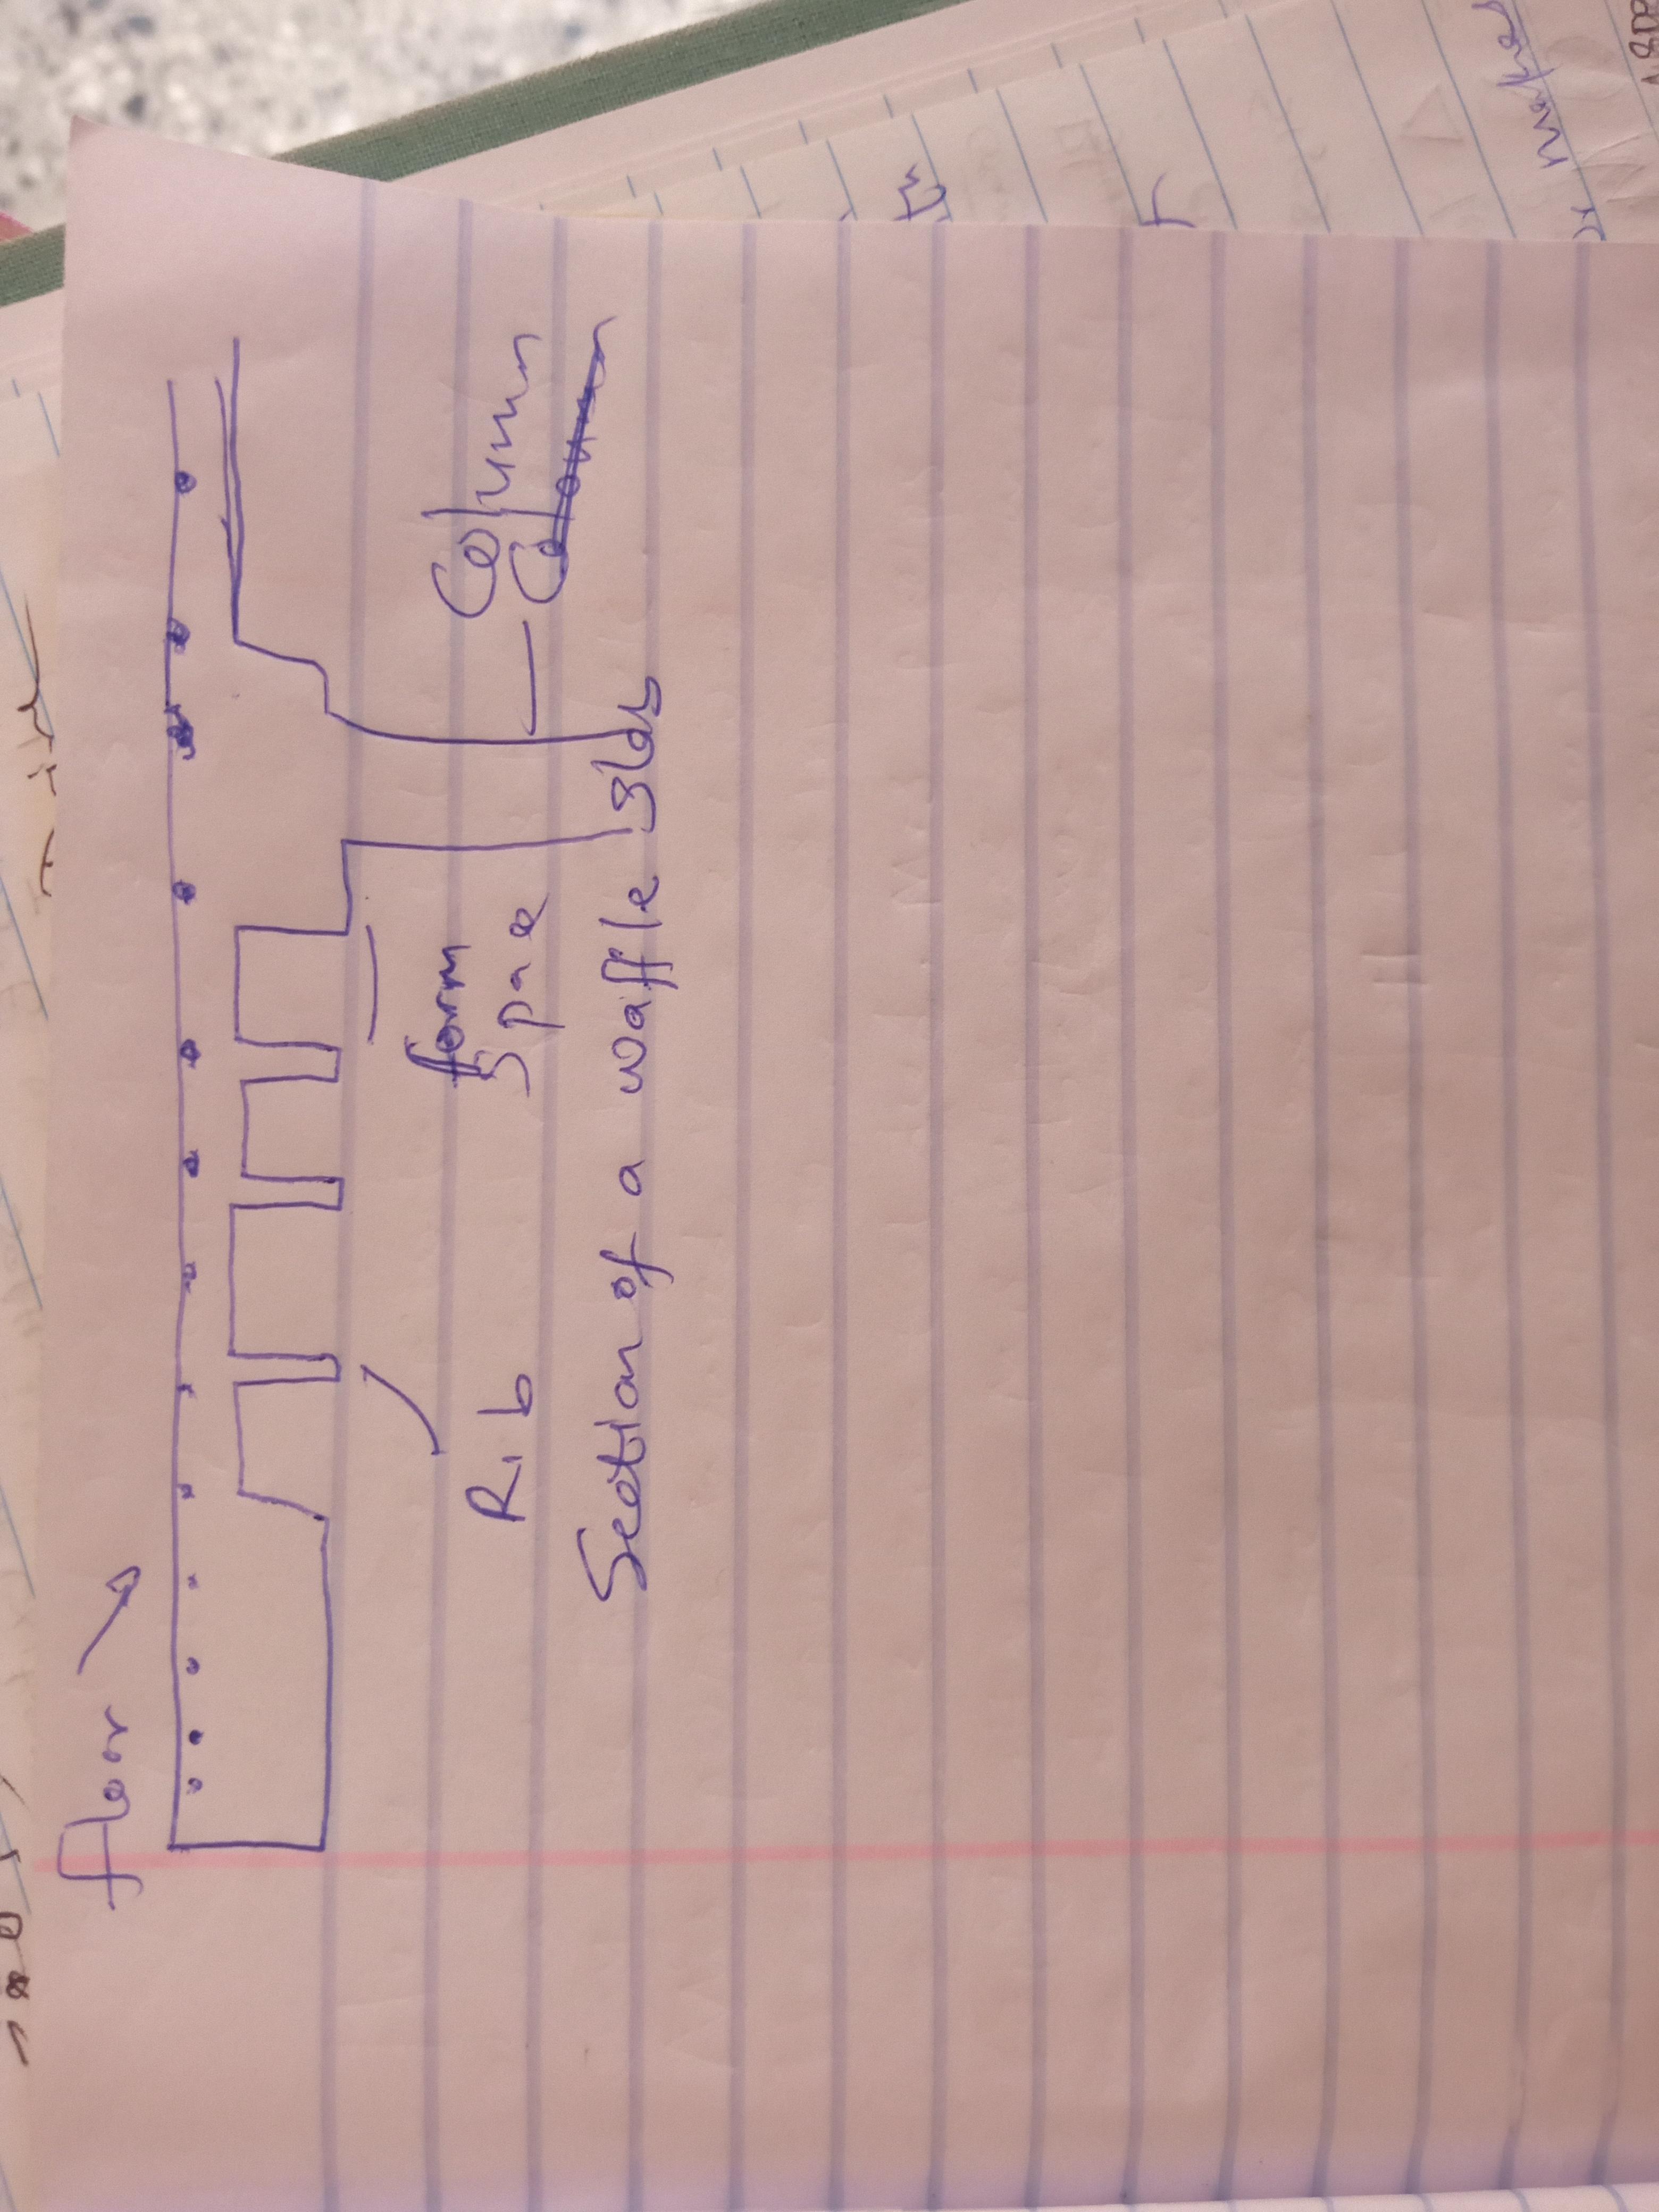 floor
Rib
form
space
Column
Coloumn
Section of a waffle slab